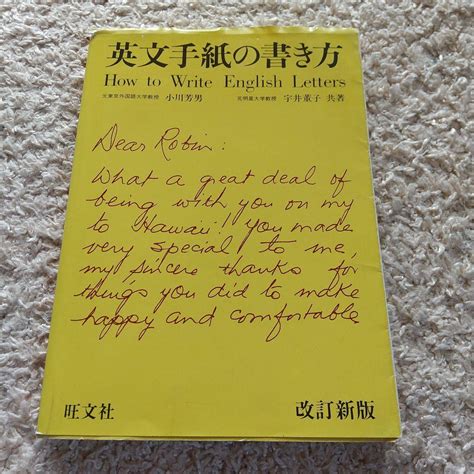 英文手紙の書き方
How to Write English Letters
元東京外国語大学教授 小川芳男 元明星大学教授 宇井菫子 共著
Dear Robin:
What a great deal of
being with you on my
to Hawaii! You made
very special to me,
my sincere thanks for
things you did to make
happy and comfortable
旺文社 改訂新版